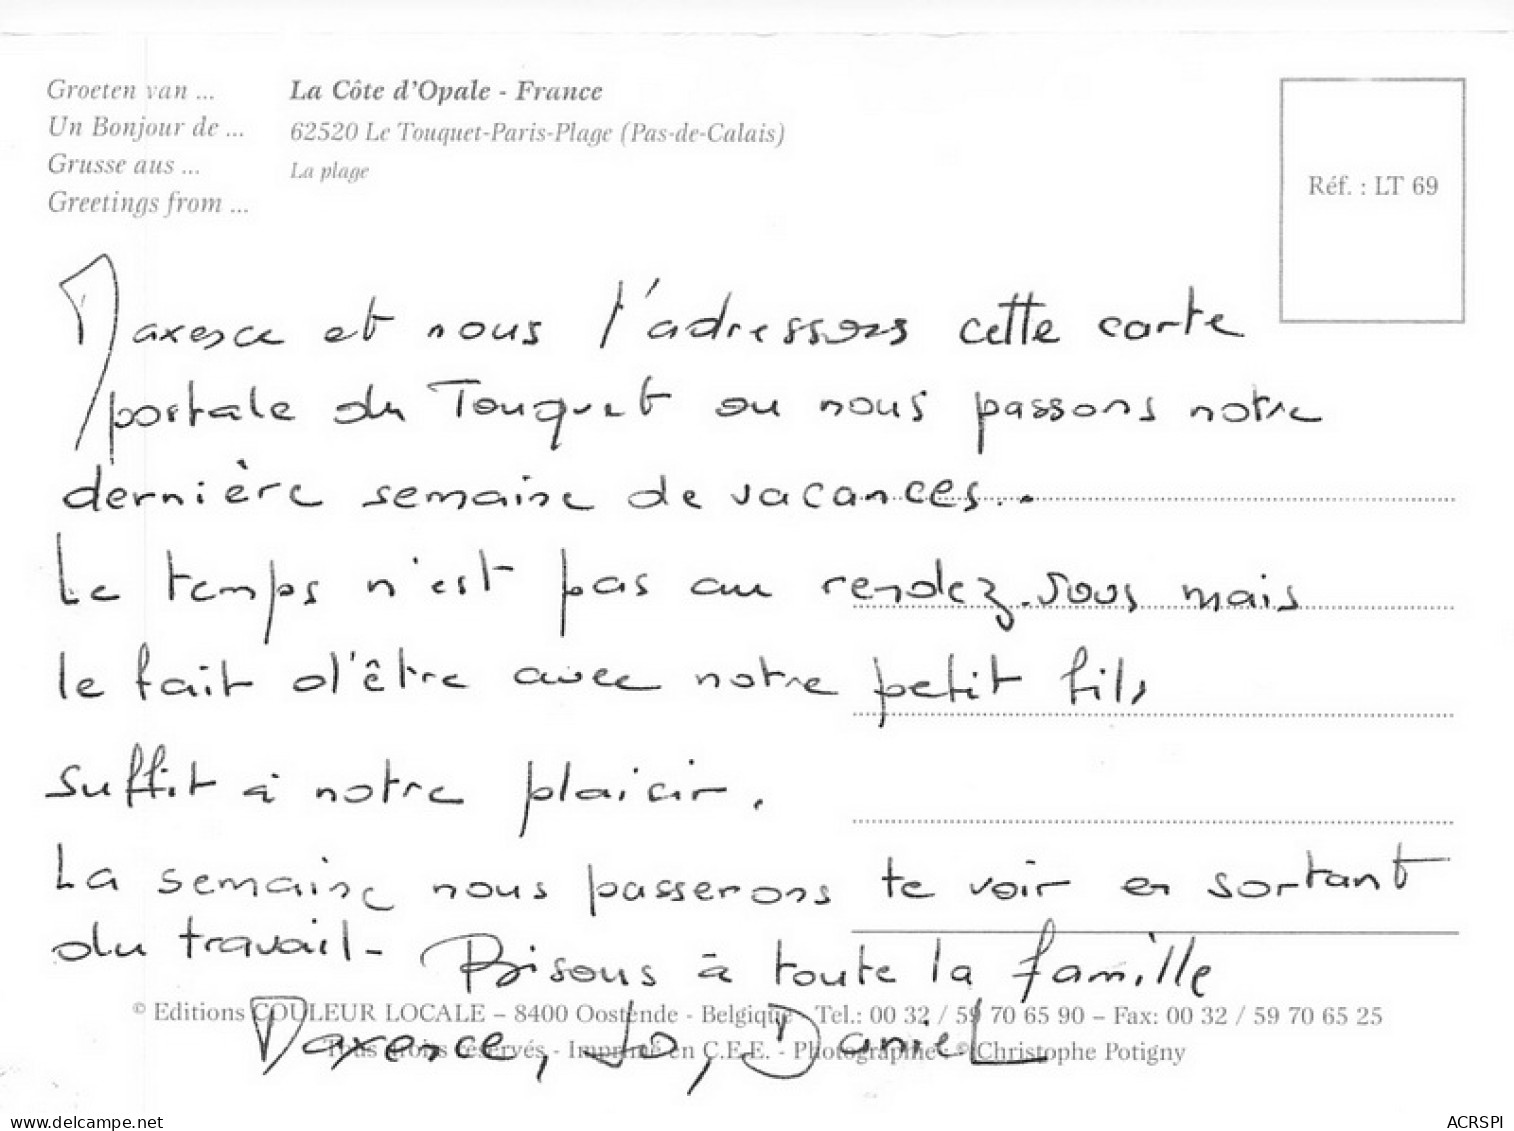 Groeten van ...
Un Bonjour de ...
Grusse aus ...
Greetings from ...
La Côte d'Opale - France
62520 Le Touquet-Paris-Plage (Pas-de-Calais)
La plage
Réf. : LT 69
Maxence et nous t'adressons cette carte
postale du Touquet ou nous passons notre
dernière semaine de vacances..
Le temps n'est pas au rendez-vous mais
le fait d'être avec notre petit fils
suffit à notre plaisir.
La semaine nous passerons te voir en sortant
du travail - Bisous à toute la famille
Maxence, Jo, Daniel
© Editions COULEUR LOCALE – 8400 Oostende - Belgique Tel.: 00 32 / 59 70 65 90 – Fax: 00 32 / 59 70 65 25
Tous droits réservés - Imprimé en C.E.E. - Photographie : © Christophe Potigny
www.delcampe.net
ACRSPI